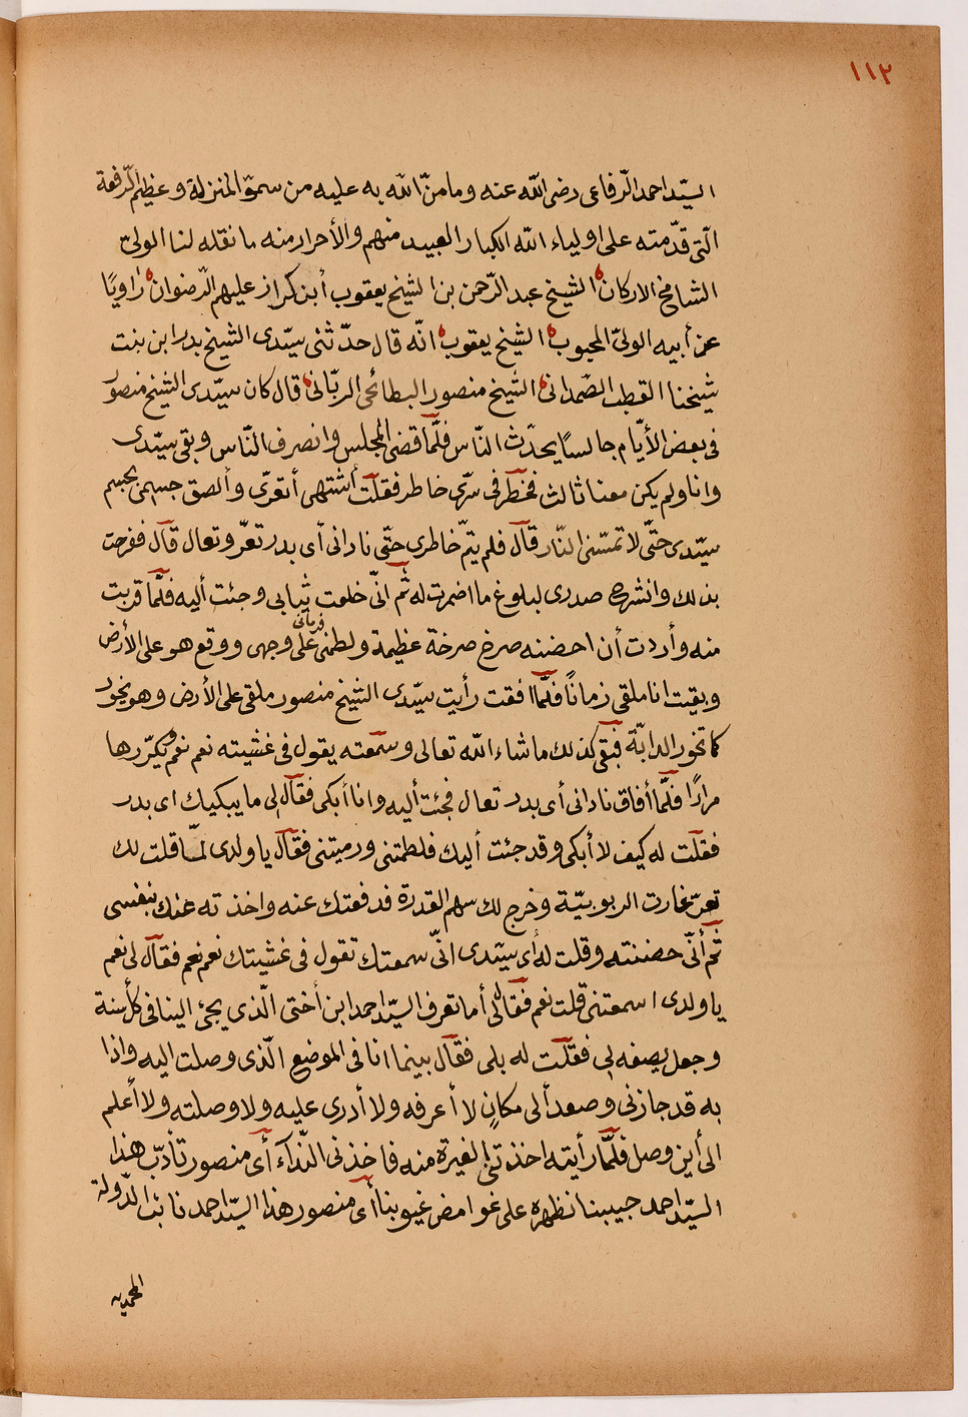 ١١٢
السيّد احمد الرّفاعى رضى الله عنه وما منّ الله به عليه من سموّ المنزلة وعظيم الرّفعة
الّتى قدّمته على اولياء الله الكبار العبيد منهم والأحرار منه ما نقله لنا الولىّ
الشامخ الاركان الشيخ عبد الرّحمن بن الشيخ يعقوب أبن كراز عليهم الرّضوان راويًا
عن أبيه الولىّ المحبوب الشيخ يعقوب انّه قال حدّثنى سيّدى الشيخ بدر ابن بنت
شيخنا القطب الصّمدانى الشيخ منصور البطائحى الربّانى قال كان سيّدى الشيخ منصور
فى بعض الأيّام جالسًا يحدّث النّاس فلّما قضى المجلس وانصرف النّاس وبقى سيّدى
وانا ولم يكن معنا ثالث فخطر فى سرّى خاطر فقلت أشتهى أتعرّى وألصق جسمى بجسم
سيّدى حتّى لا تمسّنى النّار قال فلم يتمّ خاطرى حتّى نادانى أى بدر تعرّ وتعال قال ففرحت
بذلك وانشرح صدرى لبلوغ ما اضمرت له ثم انّى خلعت ثيابى وجئت أليه فلّما قربت
منه وأردت أن احضنه صرخ صرخة عظيمة ولطمنى على وجهى فرمانى ووقع هو على الأرض
وبقيت انا ملقى زمانًا فلّما افقت رأيت سيّدى الشيخ منصور ملقى على الأرض وهو يخور
كما تخور الدابّة فبقى كذلك ما شاء الله تعالى وسمعته يقول فى غشيته نعم نعم ويكرّرها
مرارًا فلّما أفاق نادانى أى بدر تعال فجئت أليه وانا أبكى فقال لى ما يبكيك اى بدر
فقلت له كيف لا أبكى وقد جئت أليك فلطمتنى ورميتنى فقال يا ولدى لمّا قلت لك
تعرّ غارت الربوبيّة وخرج لك سهم القدرة فدفعتك عنه واخذته عنك بنفسى
ثم أنّى حضنته وقلت له أى سيّدى انّى سمعتك تقول فى غشيتك نعم نعم فقال لى نعم
يا ولدى اسمعتنى قلت نعم فقال لى أما تعرف السيّد احمد ابن أختى الّذى يجئ الينا فى كل سنة
وجعل يصفه لى فقلت له بلى فقال بينما انا فى الموضع الّذى وصلت اليه واذا
به قد جازنى وصعد ألى مكانٍ لا أعرفه ولا أدرى عليه ولا وصلته ولا أعلم
الى أين وصل فلّما رأيته اخذتنى الغيرة منه فاخذنى النّدآء أى منصور تأدّب هذا
السيّد احمد حبيبنا نظهره على غوامض غيوبنا أى منصور هذا السيّد احمد نائب الدّولة
المحمديه